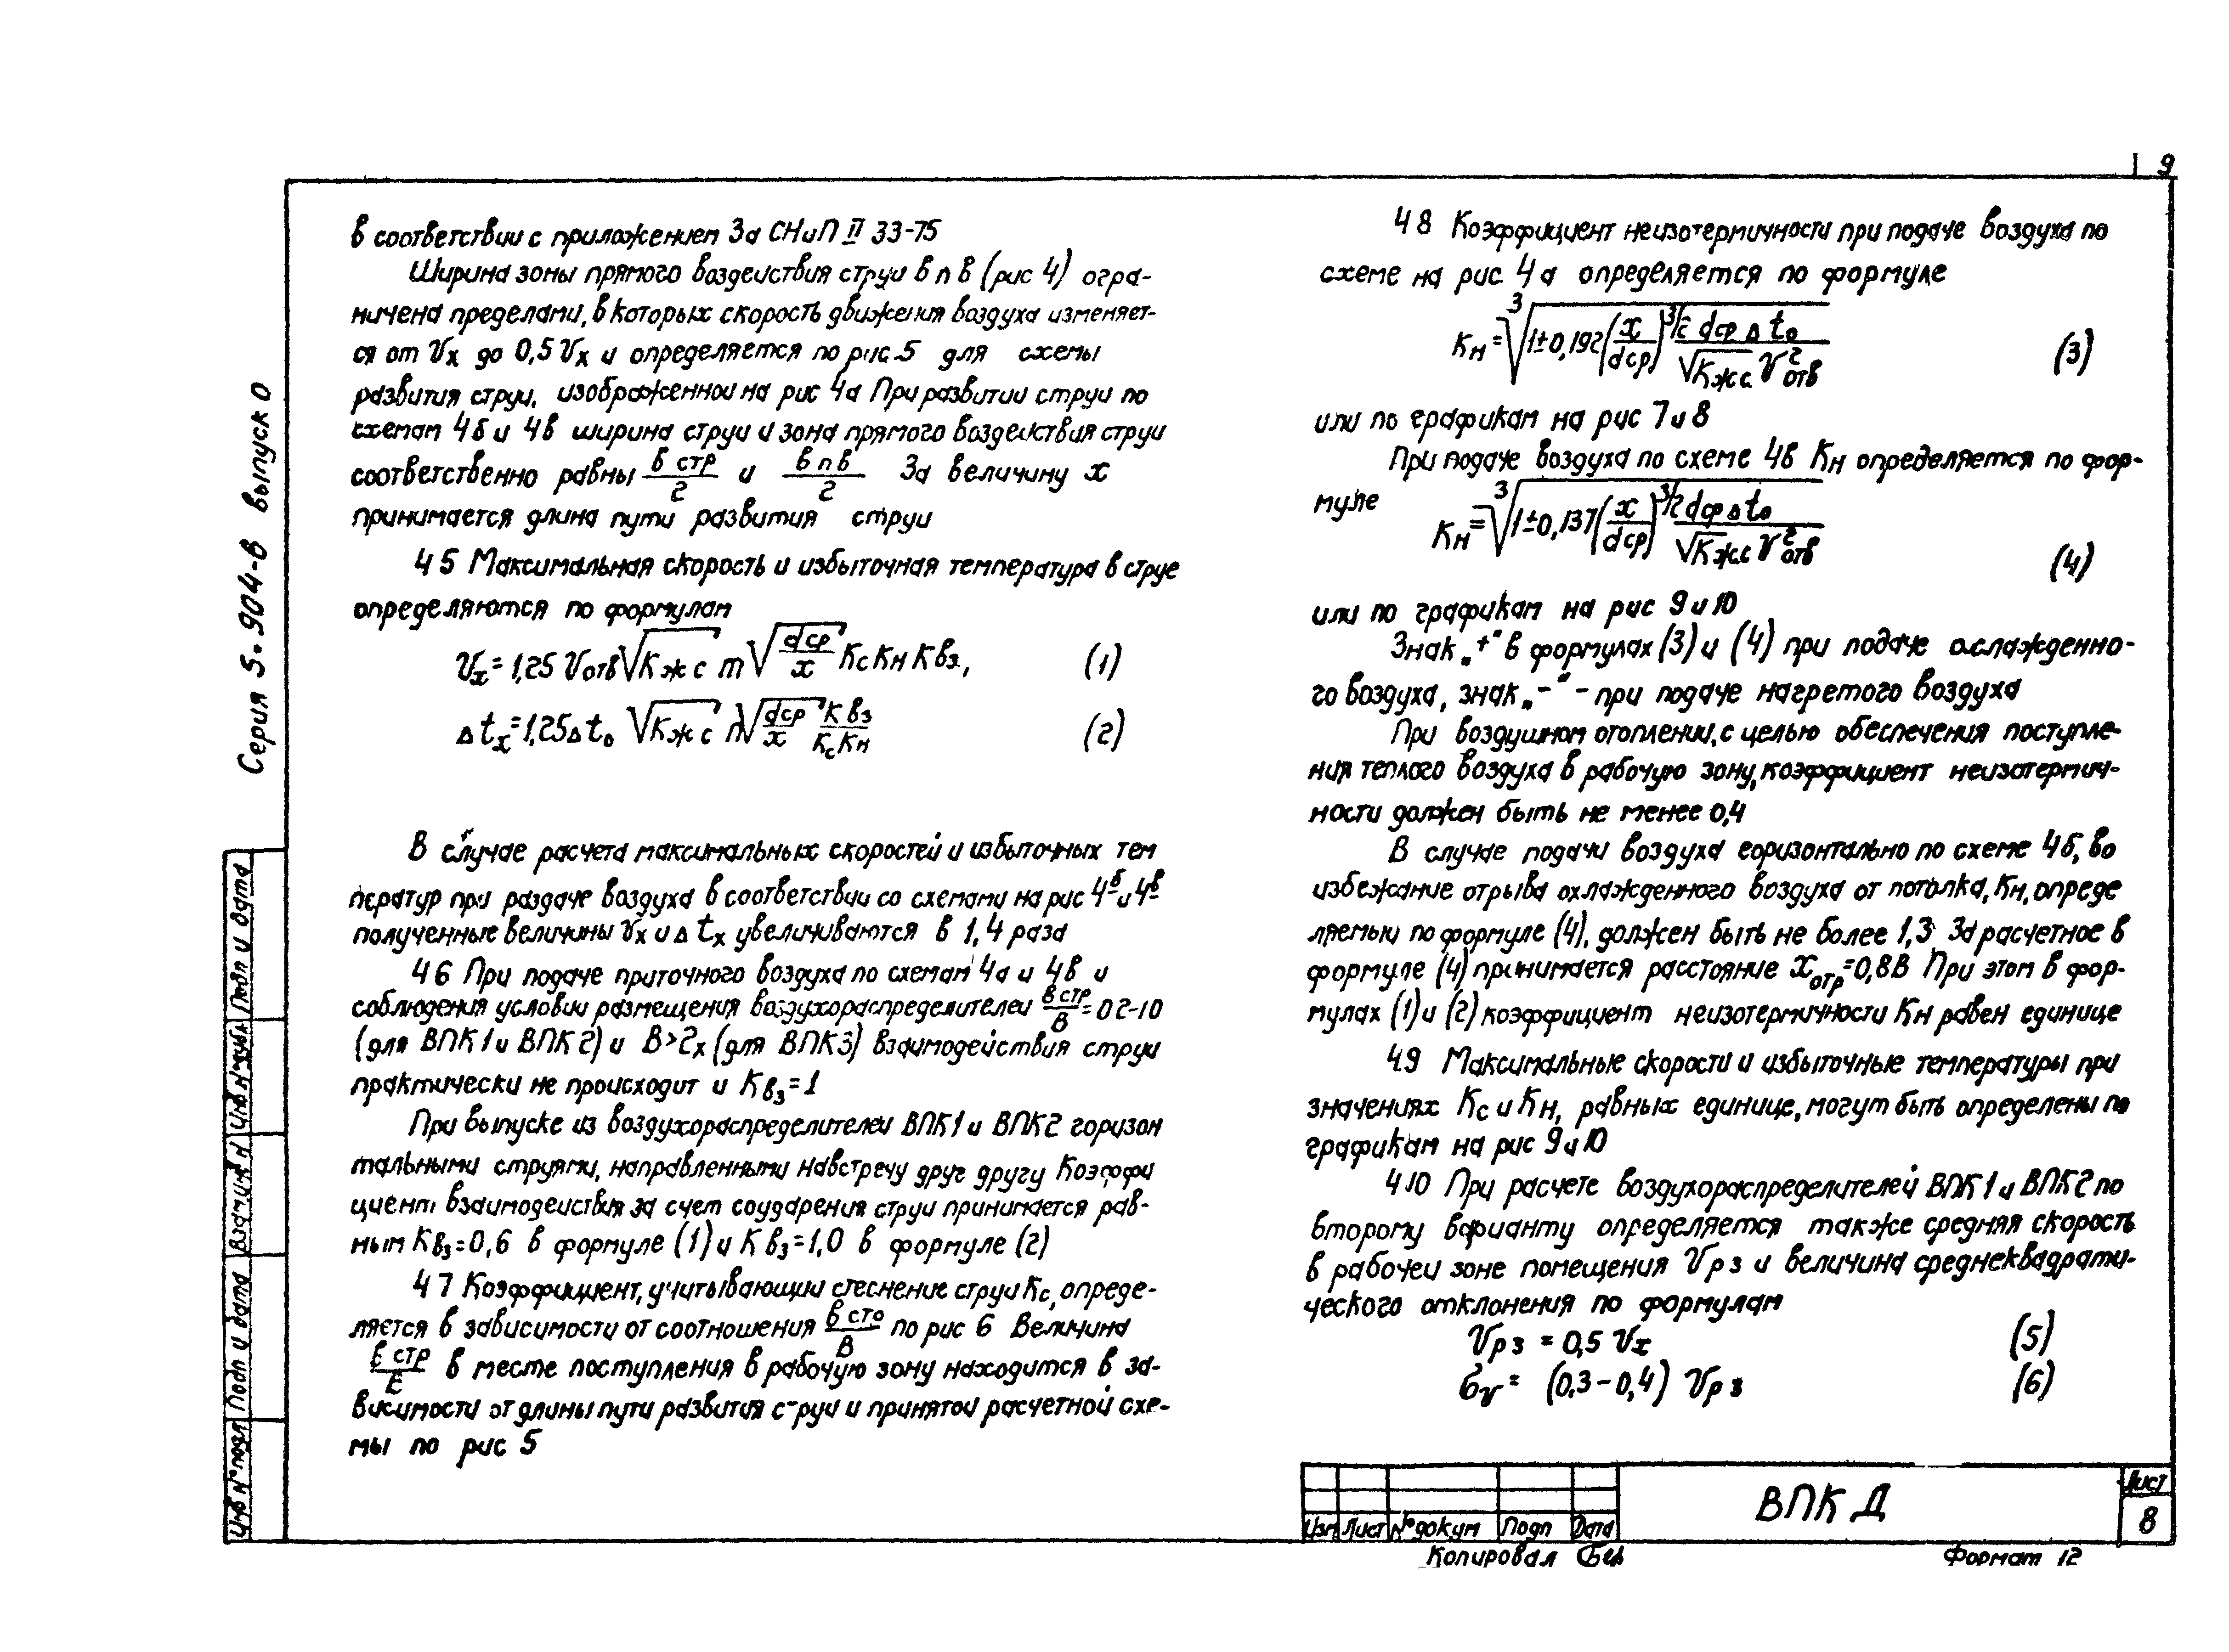 9
в соответствии с приложением 3а СНиП II 33-75
Ширина зоны прямого воздействия струи в п в (рис 4) огра-
ничена пределами, в которых скорость движения воздуха изменяет-
ся от Vx до 0,5 Vx и определяется по рис. 5 для схемы
развития струи, изображенной на рис 4а При развитии струи по
схемам 4б и 4в ширина струи и зона прямого воздействия струи
соответственно равны в стр/2 и в п в/2 За величину x
принимается длина пути развития струи
4 5 Максимальная скорость и избыточная температура в струе
определяются по формулам
Vx = 1,25 Vотв √Кжс m √dср/x Кс Кн Квз, (1)
Δtx = 1,25 Δto √Кжс n √dср/x Квз/Кс Кн (2)
В случае расчета максимальных скоростей и избыточных тем
ператур при раздаче воздуха в соответствии со схемами на рис 4б и 4в
полученные величины Vx и Δtx увеличиваются в 1,4 раза
4 6 При подаче приточного воздуха по схемам 4а и 4в и
соблюдения условии размещения воздухораспределителеи в стр/В = 02-10
(для ВПК1 и ВПК2) и В>2x (для ВПК3) взаимодействия струи
практически не происходит и Квз = 1
При выпуске из воздухораспределителеи ВПК1 и ВПК2 горизон
тальными струями, направленными навстречу друг другу Коэффи
циент взаимодеиствия за счет соударения струи принимается рав-
ным Квз = 0,6 в формуле (1) и Квз = 1,0 в формуле (2)
4 7 Коэффициент, учитывающии стеснение струи Кс, опреде-
ляется в зависимости от соотношения в стр/В по рис 6 Величина
в стр/В в месте поступления в рабочую зону находится в за-
висимости от длины пути развития струи и принятои расчетной схе-
мы по рис 5
4 8 Коэффициент неизотермичности при подаче воздуха по
схеме на рис 4а определяется по формуле
Кн = ∛1±0,192(x/dср)^3/2 dср Δto/√Кжс V²отв (3)
или по графикам на рис 7 и 8
При подаче воздуха по схеме 4в Кн определяется по фор-
муле
Кн = ∛1±0,137(x/dср)^3/2 dср Δto/√Кжс V²отв (4)
или по графикам на рис 9 и 10
Знак „+“ в формулах (3) и (4) при подаче охлажденно-
го воздуха, знак „-“ - при подаче нагретого воздуха
При воздушном отоплении, с целью обеспечения поступле-
ния теплого воздуха в рабочую зону, коэффициент неизотермич-
ности должен быть не менее 0,4
В случае подачи воздуха горизонтально по схеме 4б, во
избежание отрыва охлажденного воздуха от потолка, Кн, опреде
ляемыи по формуле (4), должен быть не более 1,3 За расчетное в
формуле (4) принимается расстояние xотр = 0,8В При этом в фор-
мулах (1) и (2) коэффициент неизотермичности Кн равен единице
4.9 Максимальные скорости и избыточные температуры при
значениях Кс и Кн, равных единице, могут быть определены по
графикам на рис 9 и 10
4.10 При расчете воздухораспределителей ВПК1 и ВПК2 по
второму варианту определяется также средняя скорость
в рабочеи зоне помещения Vрз и величина среднеквадрати-
ческого отклонения по формулам
Vрз = 0,5 Vx (5)
σv = (0,3-0,4) Vрз (6)
Серия 5.904-6 выпуск 0
Подп и дата
Инв N дубл
Взам инв N
Подп и дата
Инв N° подл
Изм Лист N° докум Подп Дата
ВПК Д
Лист
8
Копировал
Формат 12